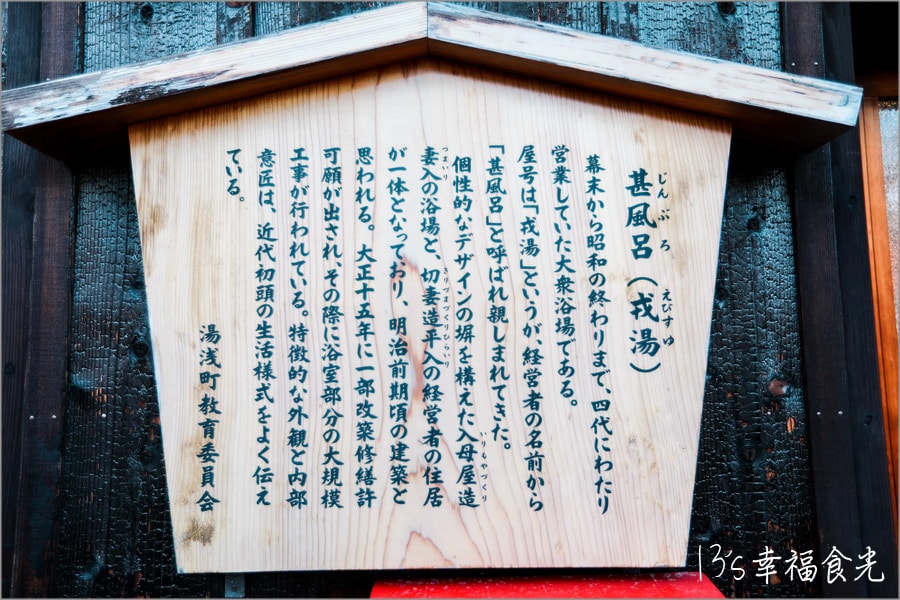 甚風呂（戎湯）
じんぶろ
えびすゆ
幕末から昭和の終わりまで、四代にわたり
営業していた大衆浴場である。
屋号は「戎湯」というが、経営者の名前から
「甚風呂」と呼ばれ親しまれてきた。
個性的なデザインの塀を構えた入母屋造
いりもやづくり
妻入の浴場と、切妻造平入の経営者の住居
つまいり
きりづまづくりひらいり
が一体となっており、明治前期頃の建築と
思われる。大正十五年に一部改築修繕許
可願が出され、その際に浴室部分の大規模
工事が行われている。特徴的な外観と内部
意匠は、近代初頭の生活様式をよく伝え
ている。
湯浅町教育委員会
13's幸福食光